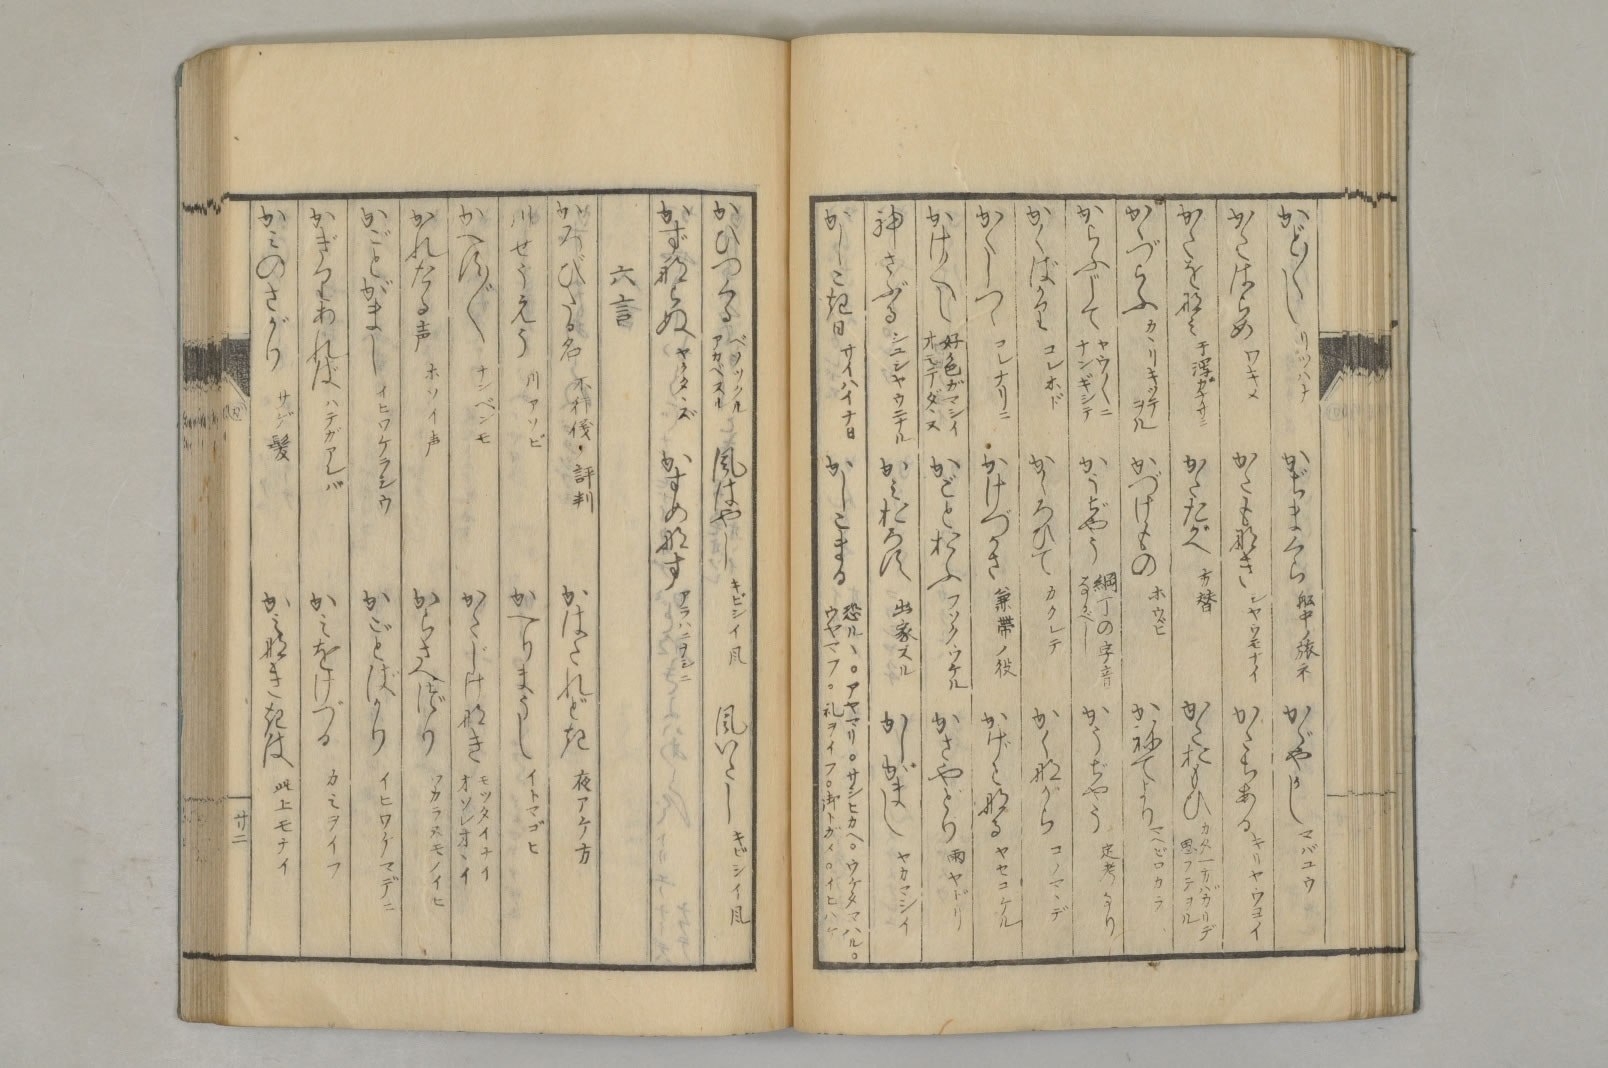 かど〳〵し リツハナ
かぢまくら 船中ノ旅ネ
かゞやかし マバユウ
かたはらめ ワキメ
かたも那き シヤウモナイ
かたちある キリヤウヨイ
かたを那ミ
かたたがへ 方替
かたおもひ カタ一方バカリデ思フテヲル
かゝづらふ カヽリキツテヲル
かづけもの ホウビ
かねてより マヘビロカラ
からふじて ヤウ〳〵ニ ナンギシテ
かうぢやう 綱丁の字音なるべし
かうぢやう 定考なり
かくばかり コレホド
かくろひて カクレテ
かく那がら コノマヽデ
かくしつゝ コレナリニ
かけづかさ 兼帯ノ役
かじけ那る ヤセコケル
かけ〳〵し 好色ガマシイ オモテダヽヌ
かごとおふ フソクウケル
かさやどり 雨ヤドリ
神さぶる シユシヤウニナル
かミおろす 出家スル
かしがまし ヤカマシイ
かしこき日 サイハイナ日
かしこまる 恐ルヽ。アヤマリ。サシヒカヘ。ウケタマハル。ウヤマフ。礼ヲイフ。御トガメ。イヒハケ
かひつくる ベツツクル アカベスル
風はやし キビシイ風
風いたし キビシイ風
かず那らぬ ヤクタヽズ
かすめ那す
六言
かみびたる名
川せうえう 川アソビ
かへりまうし イトマゴヒ
かへす〴〵 ナンベンモ
かたじけ那き モツタイナイ オソレオヽイ
かれたる声 ホソイ声
からさへづり ワカラヌモノイヒ
かごとがまし イヒワケラシウ
かごとばかり イヒワケマデニ
かぎりあれば ハテガアレバ
かミをけづる カミヲイフ
かミのさがり サゲ髪
かミ那きゝは 此上モナイ
廿二